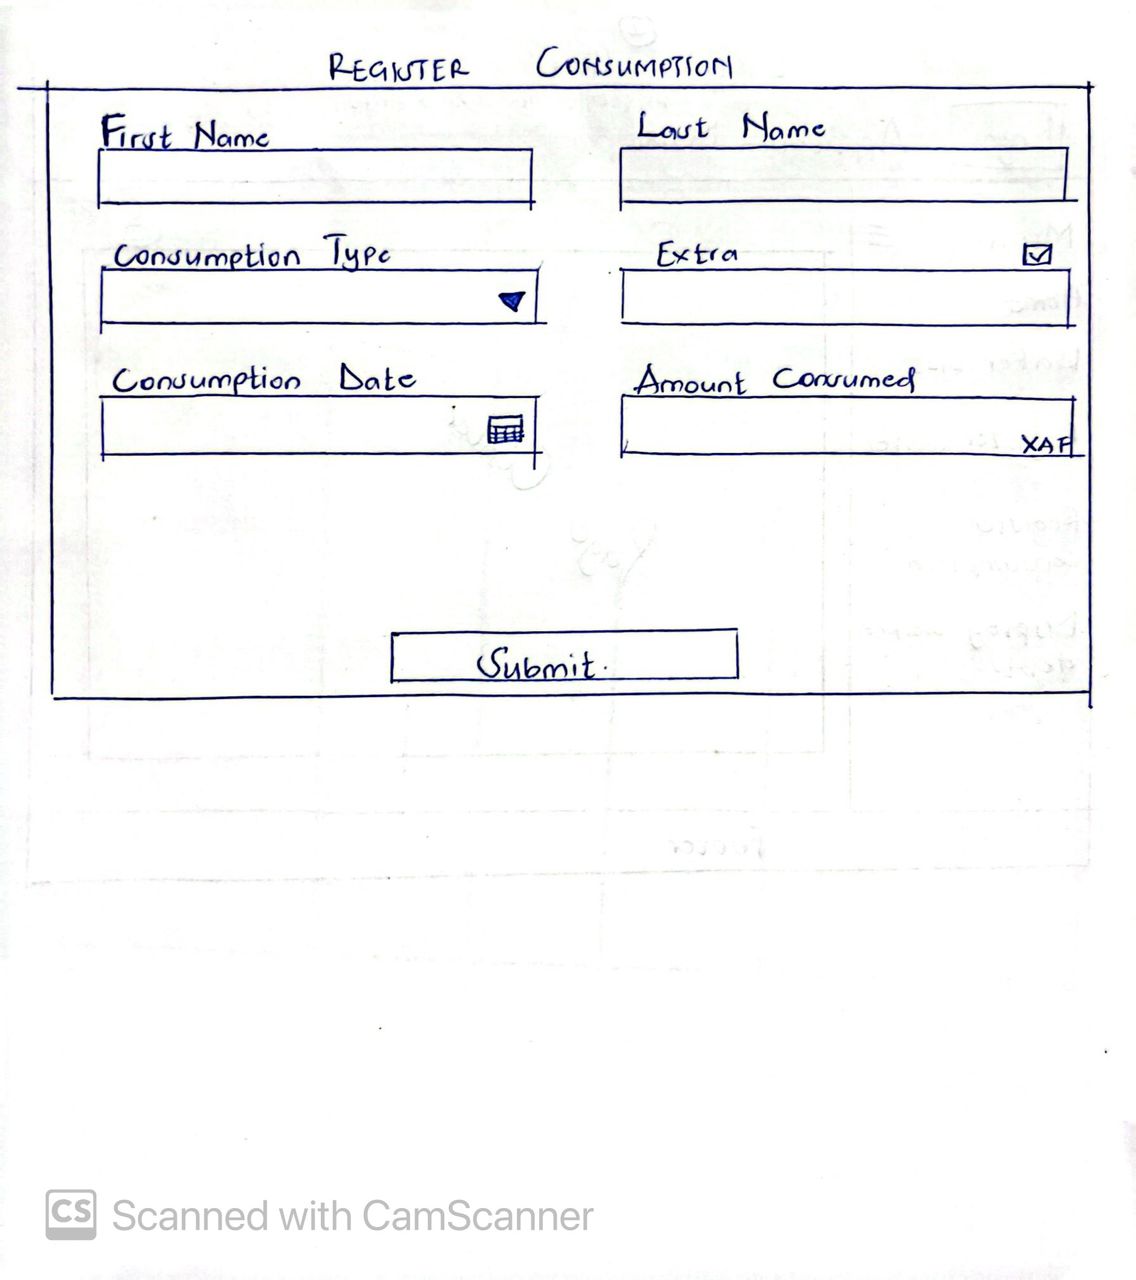 REGISTER CONSUMPTION
First Name
Last Name
Consumption Type
Extra
Consumption Date
Amount Consumed
XAF
Submit.
Footer
CS Scanned with CamScanner